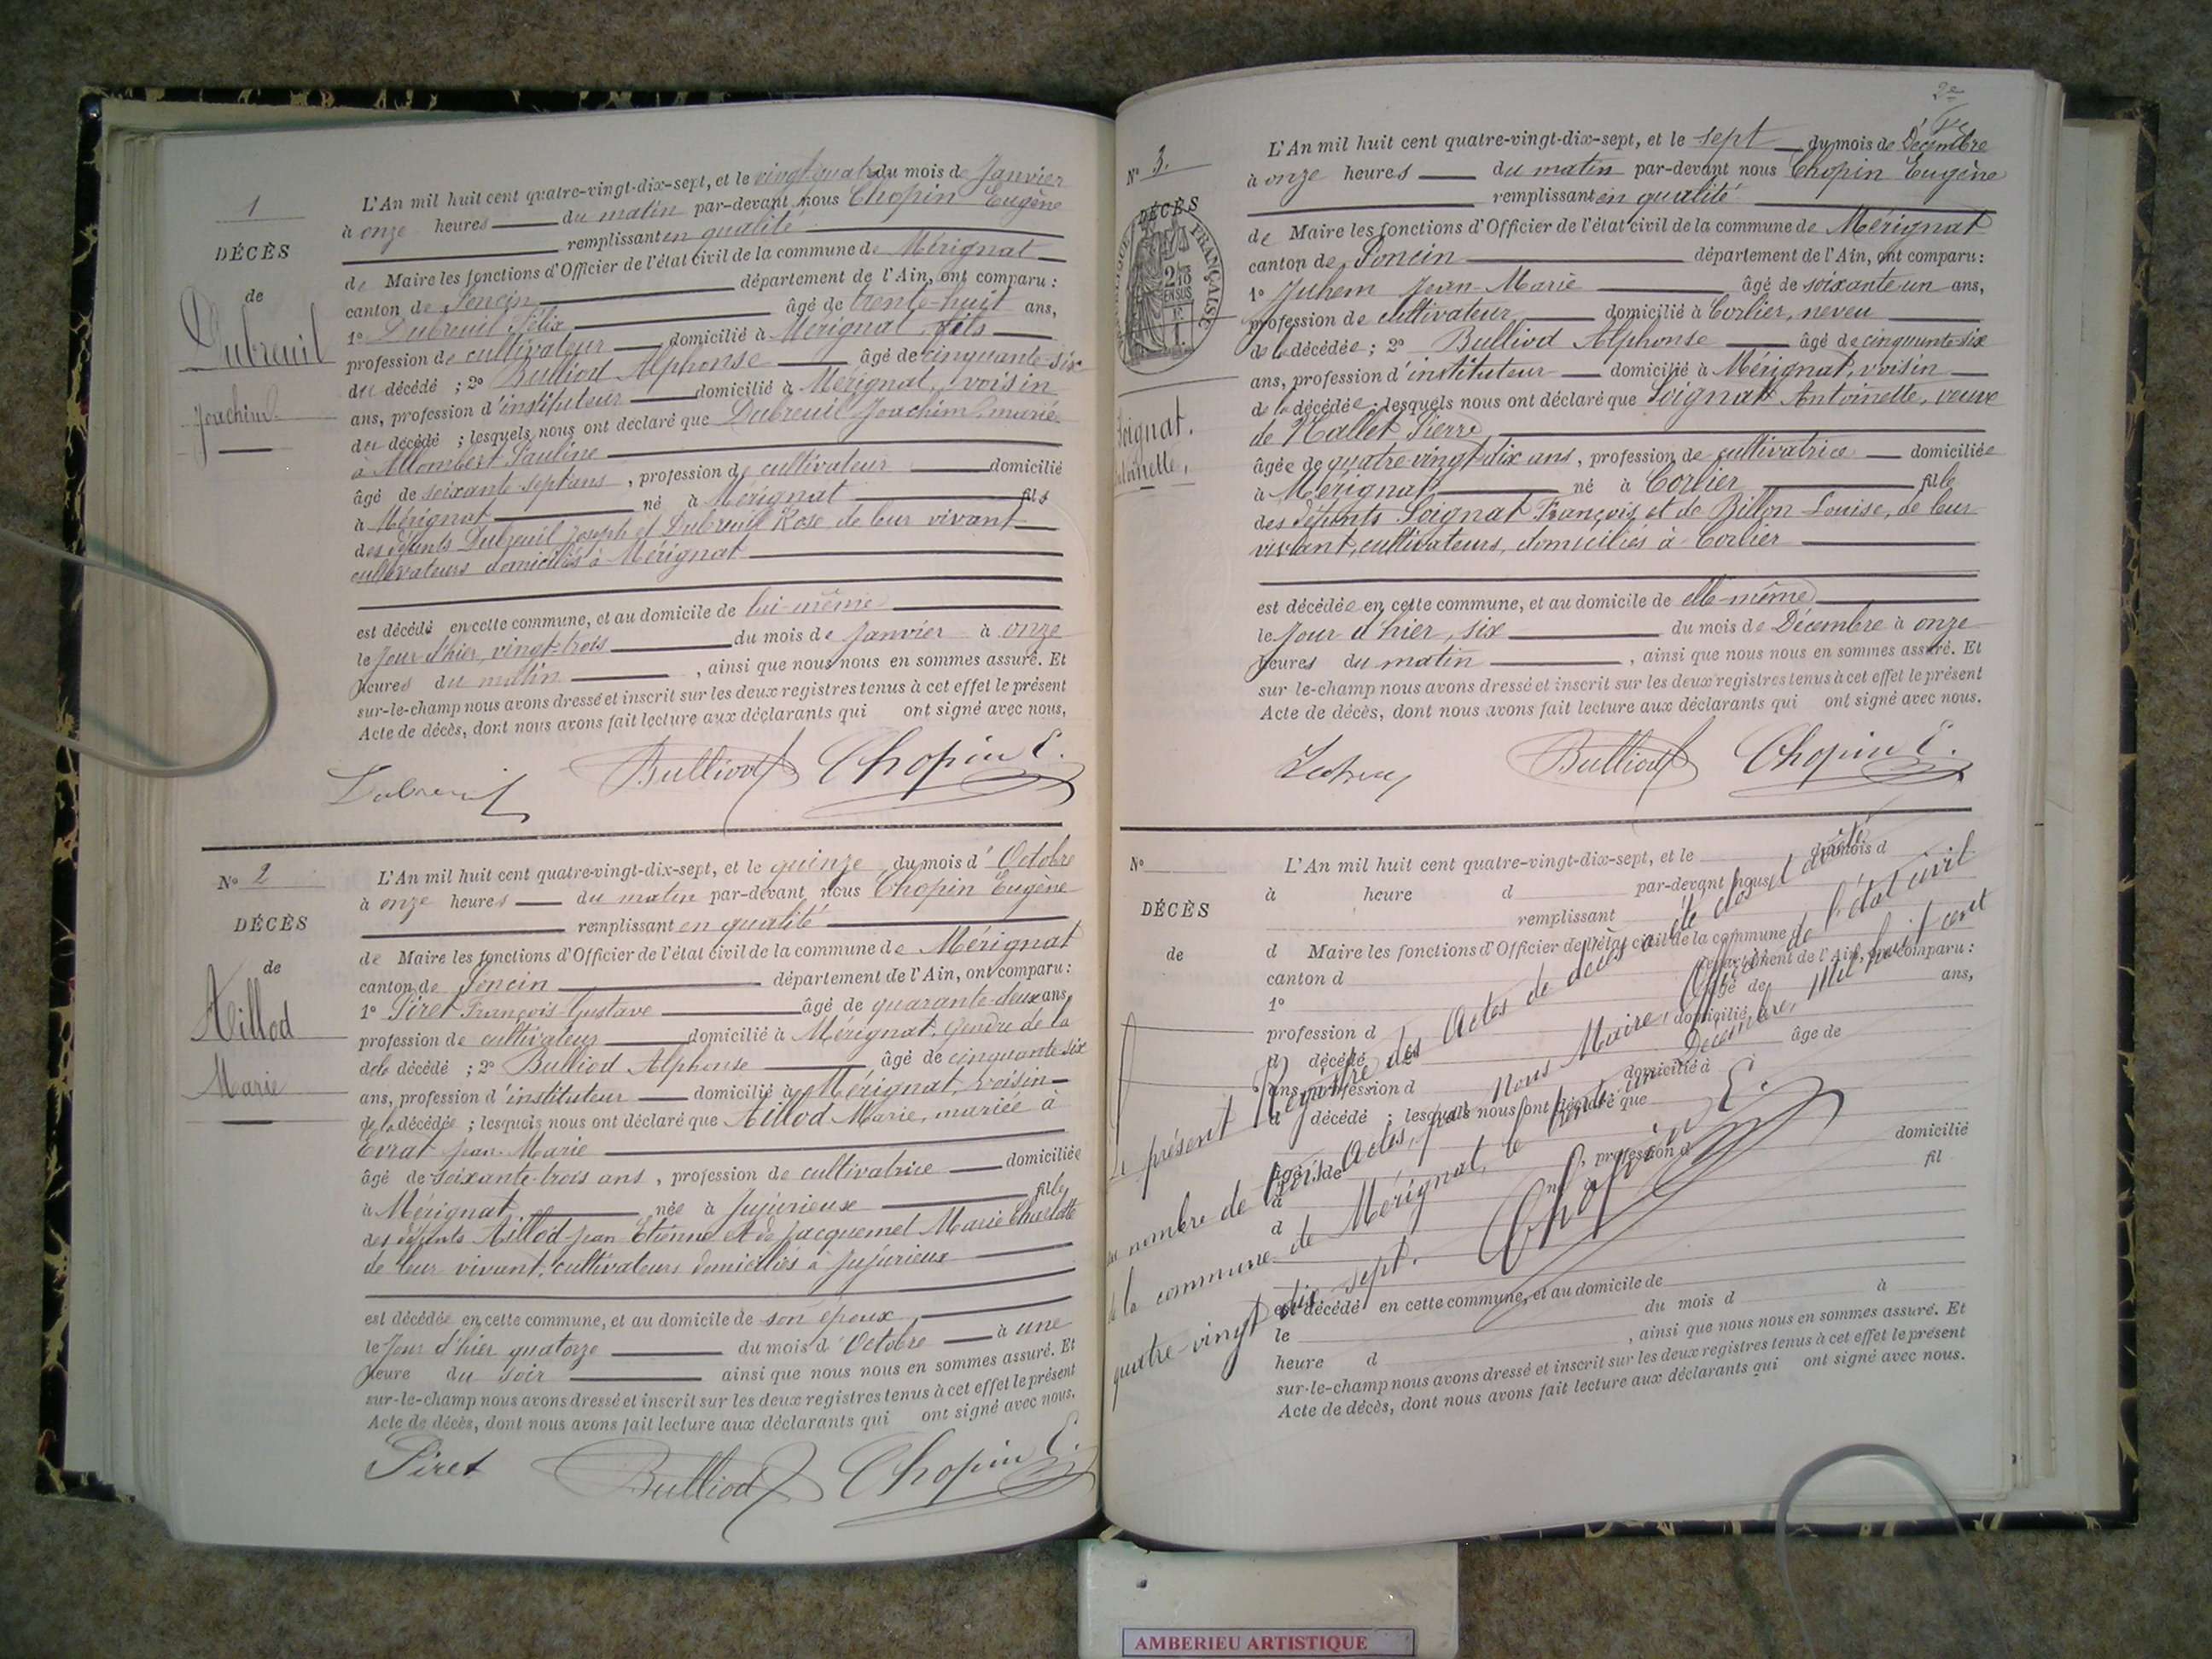 1
DÉCÈS
de
Dubreuil
Joachim
L'An mil huit cent quatre-vingt-dix-sept, et le vingt-quatre du mois de Janvier
à onze heures du matin par-devant nous Chopin Eugène
remplissant en qualité
de Maire les fonctions d'Officier de l'état civil de la commune de Mérignat
canton de Poncin département de l'Ain, ont comparu :
1º Dubreuil Félix âgé de trente-huit ans,
profession de cultivateur domicilié à Mérignat, fils
du décédé ; 2º Bulliod Alphonse âgé de cinquante-six
ans, profession d'instituteur domicilié à Mérignat, voisin
du décédé ; lesquels nous ont déclaré que Dubreuil Joachim marié
à Allombert Pauline
âgé de soixante-sept ans, profession de cultivateur domicilié
à Mérignat né à Mérignat fils
des défunts Dubreuil Joseph et Dubreuil Rose de leur vivant
cultivateurs domiciliés à Mérignat
est décédé en cette commune, et au domicile de lui-même
le Jour d'hier, vingt-trois du mois de Janvier à onze
heures du matin, ainsi que nous nous en sommes assuré. Et
sur-le-champ nous avons dressé et inscrit sur les deux registres tenus à cet effet le présent
Acte de décès, dont nous avons fait lecture aux déclarants qui ont signé avec nous,
Dubreuil Bulliod Chopin E.
Nº 2
DÉCÈS
de
Aillod
Marie
L'An mil huit cent quatre-vingt-dix-sept, et le quinze du mois d'Octobre
à onze heures du matin par-devant nous Chopin Eugène
remplissant en qualité
de Maire les fonctions d'Officier de l'état civil de la commune de Mérignat
canton de Poncin département de l'Ain, ont comparu :
1º Piret François Gustave âgé de quarante-deux ans,
profession de cultivateur domicilié à Mérignat, gendre de la
de la décédé ; 2º Bulliod Alphonse âgé de cinquante six
ans, profession d'instituteur domicilié à Mérignat, voisin
de la décédée ; lesquels nous ont déclaré que Aillod Marie, mariée à
Evrat Jean-Marie
âgé de soixante-trois ans, profession de cultivatrice domiciliée
à Mérignat née à Jujurieux fille
des défunts Aillod Jean Etienne et de Jacquemet Marie Charlotte
de leur vivant, cultivateurs domiciliés à Jujurieux
est décédée en cette commune, et au domicile de son époux
le Jour d'hier quatorze du mois d'Octobre à une
heure du soir ainsi que nous nous en sommes assuré. Et
sur-le-champ nous avons dressé et inscrit sur les deux registres tenus à cet effet le présent
Acte de décès, dont nous avons fait lecture aux déclarants qui ont signé avec nous.
Piret Bulliod Chopin E.
Nº 3.
DÉCÈS
FRANÇAISE
EN SUS
Soignat.
Antoinette,
L'An mil huit cent quatre-vingt-dix-sept, et le sept du mois de Décembre
à onze heures du matin par-devant nous Chopin Eugène
remplissant en qualité
de Maire les fonctions d'Officier de l'état civil de la commune de Mérignat
canton de Poncin département de l'Ain, ont comparu :
1º Juhem Jean-Marie âgé de soixante un ans,
profession de cultivateur domicilié à Corlier, neveu
de la décédée ; 2º Bulliod Alphonse âgé de cinquante-six
ans, profession d'instituteur domicilié à Mérignat, voisin
de la décédée ; lesquels nous ont déclaré que Soignat Antoinette, veuve
de Mallet Pierre
âgée de quatre vingt dix ans, profession de cultivatrice domiciliée
à Mérignat né à Corlier fille
des défunts Soignat François et de Billon Louise, de leur
vivant, cultivateurs, domiciliés à Corlier
est décédée en cette commune, et au domicile de elle-même
le Jour d'hier, six du mois de Décembre à onze
heures du matin, ainsi que nous nous en sommes assuré. Et
sur-le-champ nous avons dressé et inscrit sur les deux registres tenus à cet effet le présent
Acte de décès, dont nous avons fait lecture aux déclarants qui ont signé avec nous.
Bulliod Chopin E.
Nº
DÉCÈS
de
L'An mil huit cent quatre-vingt-dix-sept, et le du mois d
à heure d par-devant nous
remplissant
d Maire les fonctions d'Officier de l'état civil de la commune d
canton d département de l'Ain, ont comparu :
1º âgé de ans,
profession d domicilié à
d décédé ; 2º âgé de
ans, profession d domicilié à
d décédé ; lesquels nous ont déclaré que
âgé de , profession d domicilié
à né à fil
d
est décédé en cette commune, et au domicile de
le du mois d à
heure d , ainsi que nous nous en sommes assuré. Et
sur-le-champ nous avons dressé et inscrit sur les deux registres tenus à cet effet le présent
Acte de décès, dont nous avons fait lecture aux déclarants qui ont signé avec nous.
Le présent Registre des Actes de décès a été clos et arrêté
au nombre de trois Actes, par Nous Maire, Officier de l'état civil
de la commune de Mérignat, le trente un Décembre, Mil huit cent
quatre-vingt dix sept.
Chopin E.
AMBERIEU ARTISTIQUE